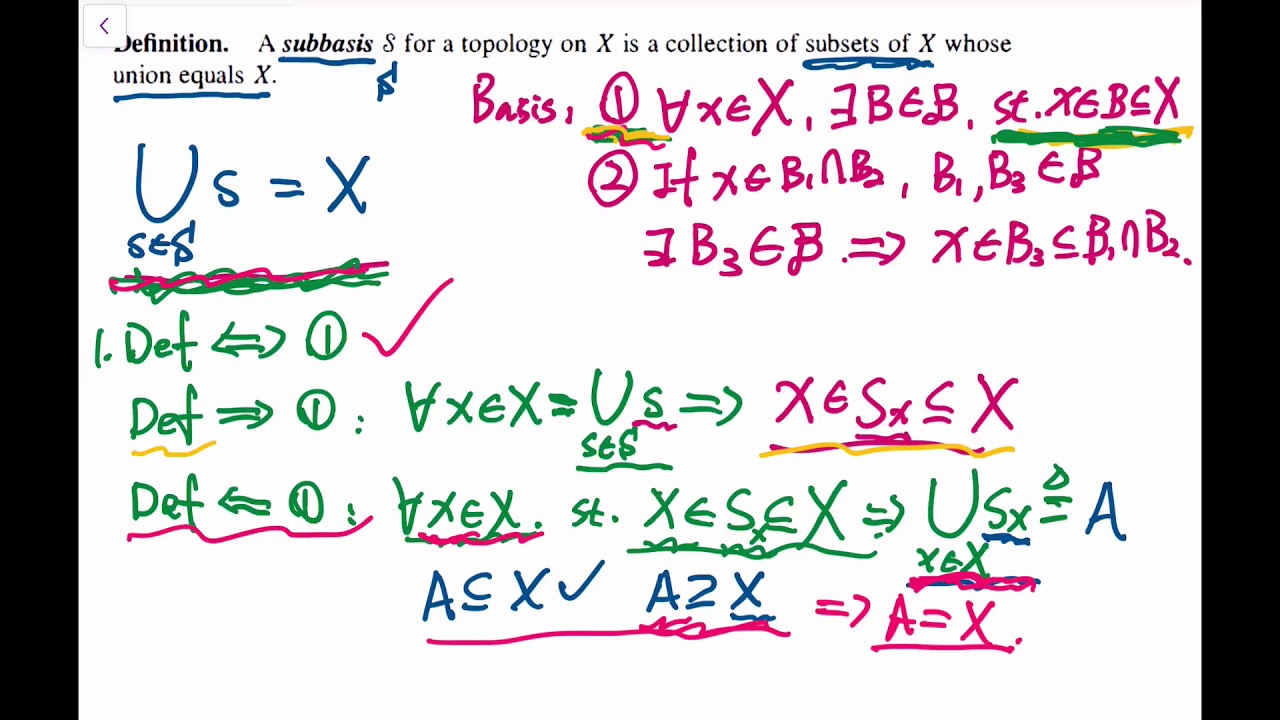 Definition. A subbasis S for a topology on X is a collection of subsets of X whose
union equals X.
S
Basis: ① ∀x∈X, ∃B∈B, st. x∈B⊆X
② If x∈B₁∩B₂, B₁, B₃∈B
∃B₃∈B ⇒ x∈B₃⊆B₁∩B₂.
⋃ s = X
s∈S
1. Def ⇔ ①
Def ⇒ ① : ∀x∈X = ⋃ s ⇒ x∈Sₓ⊆X
s∈S
Def ⇐ ① : ∀x∈X. st. x∈Sₓ⊆X ⇒ ⋃ Sₓ ≜ A
x∈X
A⊆X ✓ A⊇X ⇒ A=X.